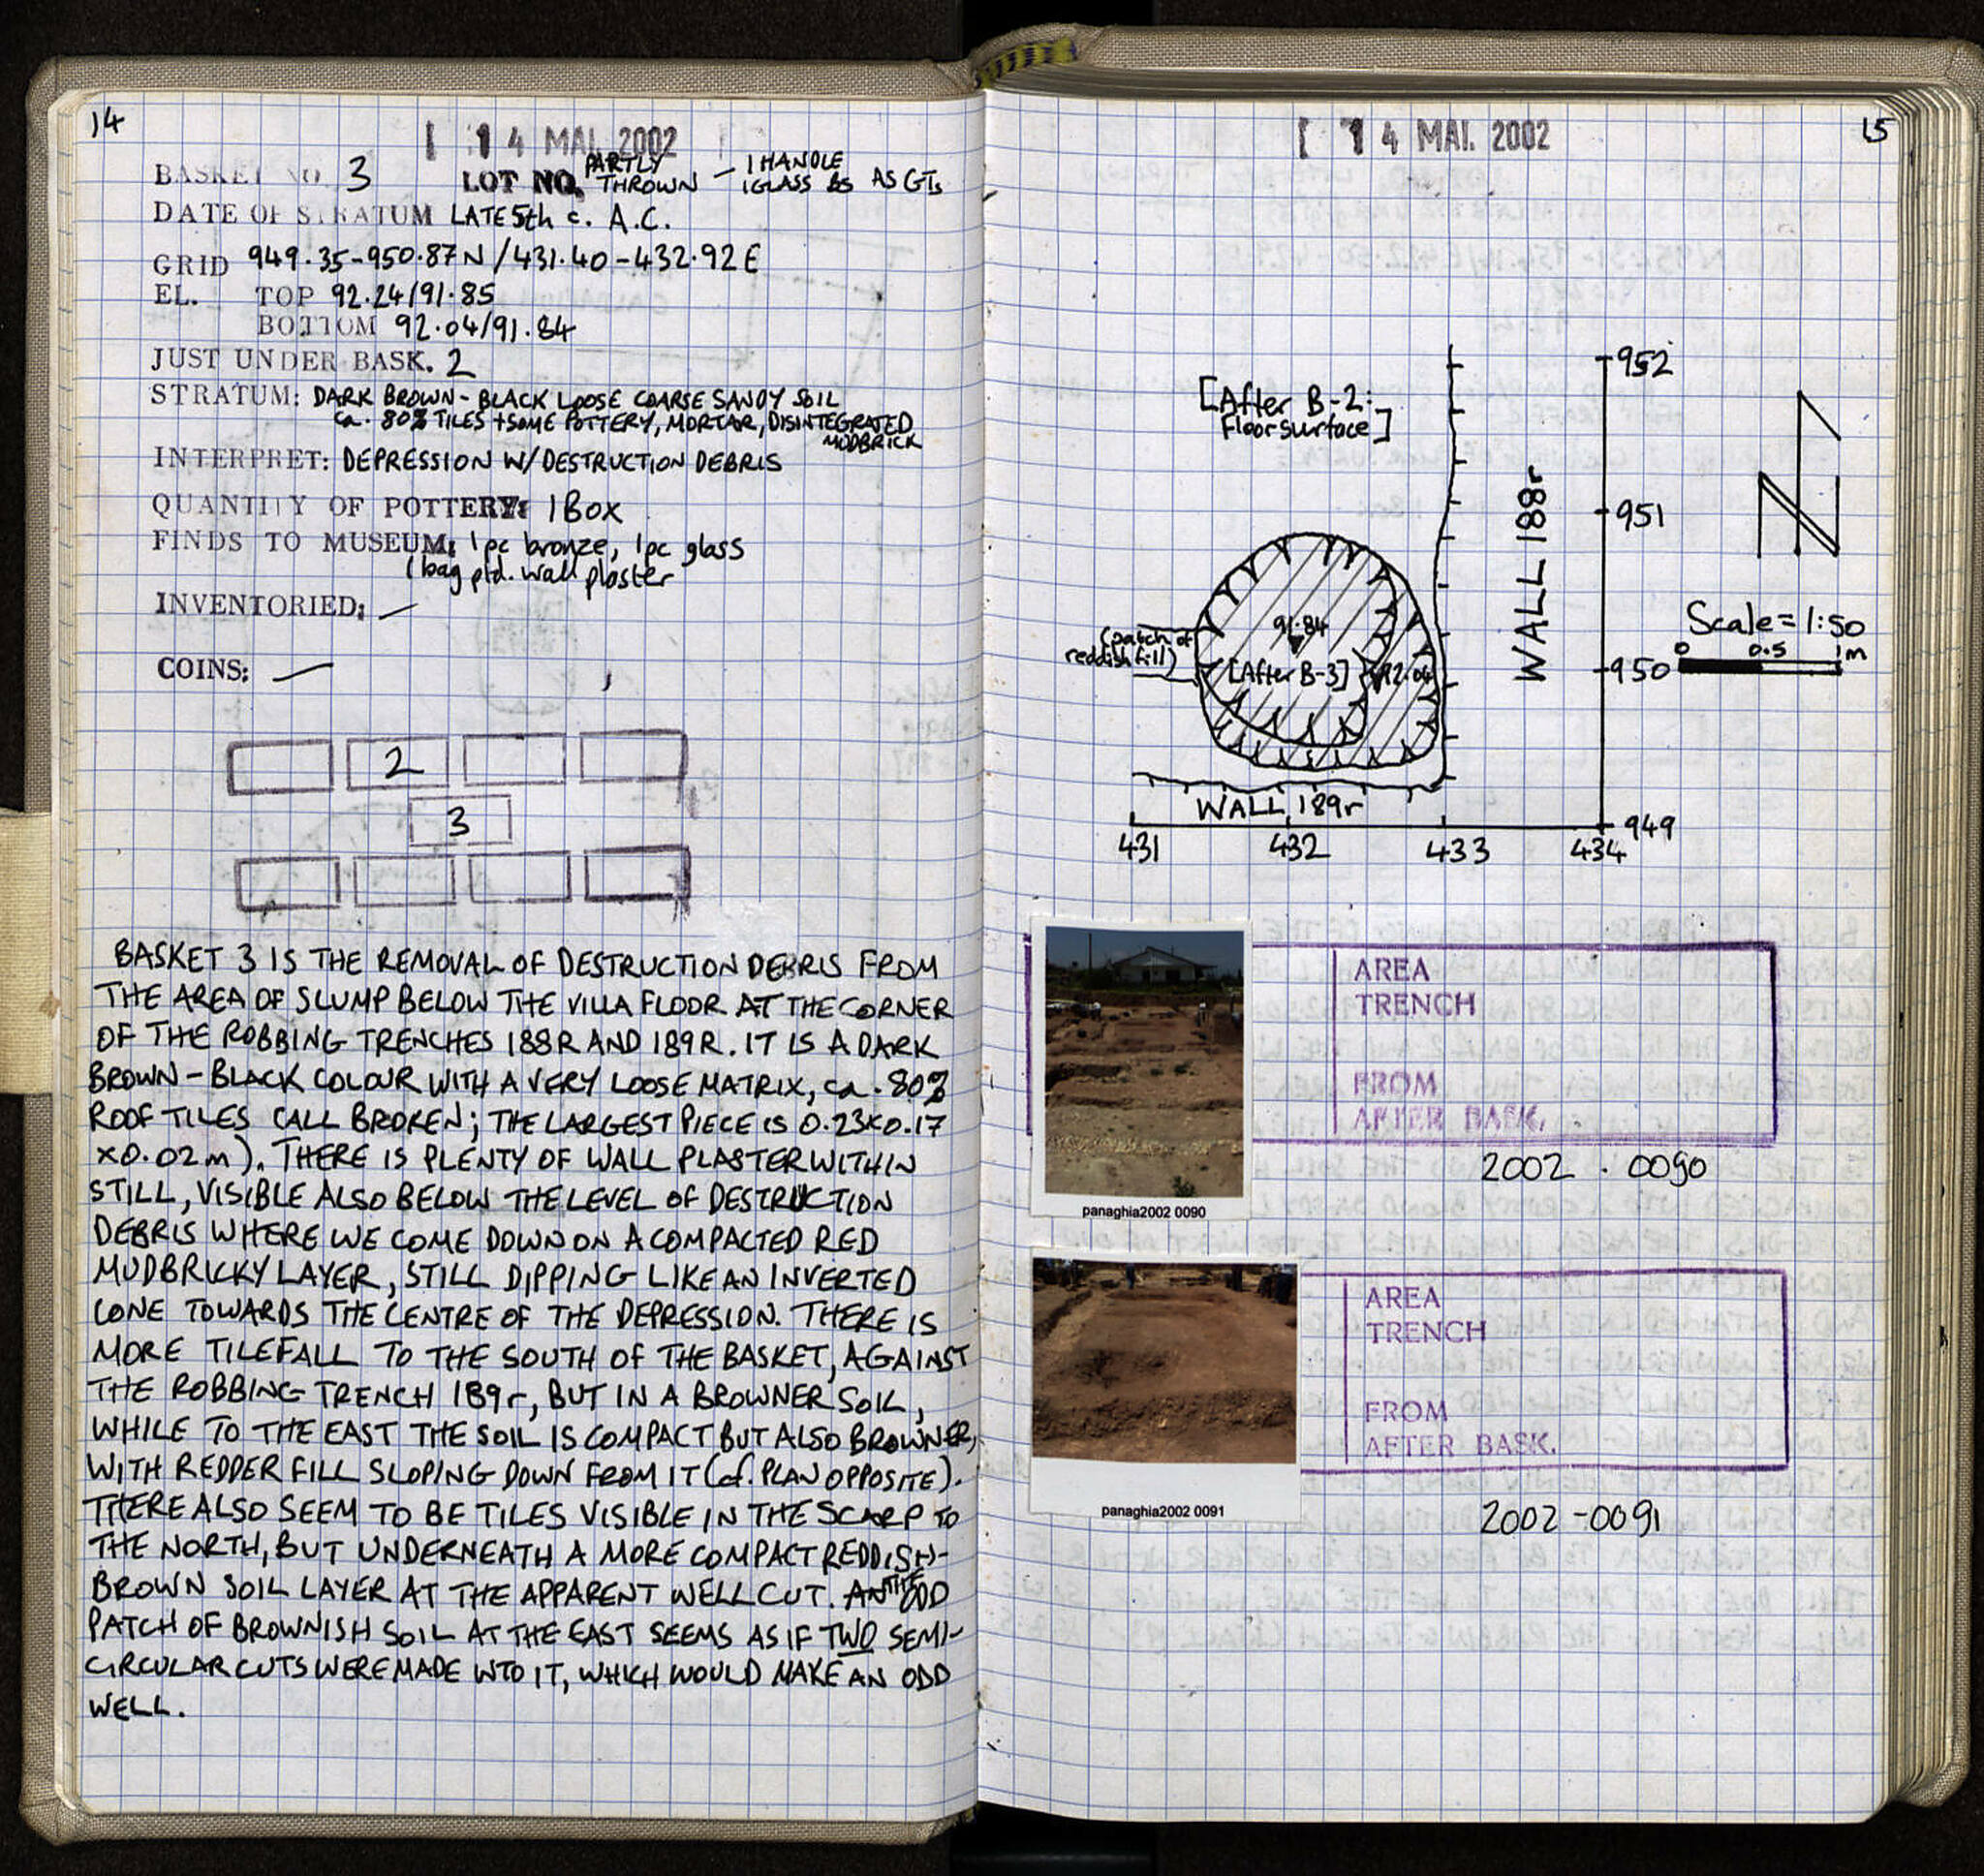 14
14 MAI. 2002
BASKET NO. 3 LOT NO. PARTLY THROWN – 1 HANDLE 1 GLASS BS AS GTs
DATE OF STRATUM LATE 5th c. A.C.
GRID 949.35-950.87N / 431.40-432.92E
EL. TOP 92.24/91.85
BOTTOM 92.04/91.84
JUST UNDER BASK. 2
STRATUM: DARK BROWN - BLACK LOOSE COARSE SANDY SOIL
ca. 80% TILES + SOME POTTERY, MORTAR, DISINTEGRATED
MUDBRICK
INTERPRET: DEPRESSION W/ DESTRUCTION DEBRIS
QUANTITY OF POTTERY: 1 BOX
FINDS TO MUSEUM: 1 pc bronze, 1 pc glass
1 bag ptd. wall plaster
INVENTORIED: —
COINS: —
2
3
BASKET 3 IS THE REMOVAL OF DESTRUCTION DEBRIS FROM
THE AREA OF SLUMP BELOW THE VILLA FLOOR AT THE CORNER
OF THE ROBBING TRENCHES 188R AND 189R. IT IS A DARK
BROWN - BLACK COLOUR WITH A VERY LOOSE MATRIX, ca. 80%
ROOF TILES (ALL BROKEN; THE LARGEST PIECE IS 0.23x0.17
x0.02m). THERE IS PLENTY OF WALL PLASTER WITHIN
STILL, VISIBLE ALSO BELOW THE LEVEL OF DESTRUCTION
DEBRIS WHERE WE COME DOWN ON A COMPACTED RED
MUDBRICKY LAYER, STILL DIPPING LIKE AN INVERTED
CONE TOWARDS THE CENTRE OF THE DEPRESSION. THERE IS
MORE TILEFALL TO THE SOUTH OF THE BASKET, AGAINST
THE ROBBING TRENCH 189r, BUT IN A BROWNER SOIL,
WHILE TO THE EAST THE SOIL IS COMPACT BUT ALSO BROWNER,
WITH REDDER FILL SLOPING DOWN FROM IT (cf. PLAN OPPOSITE).
THERE ALSO SEEM TO BE TILES VISIBLE IN THE SCARP TO
THE NORTH, BUT UNDERNEATH A MORE COMPACT REDDISH-
BROWN SOIL LAYER AT THE APPARENT WELL CUT. AN THE ODD
PATCH OF BROWNISH SOIL AT THE EAST SEEMS AS IF TWO SEMI-
CIRCULAR CUTS WERE MADE INTO IT, WHICH WOULD MAKE AN ODD
WELL.
15
14 MAI. 2002
[After B-2:
Floor surface]
952
951
950
949
WALL 188r
Scale = 1:50
0 0.5 1m
(patch of
reddish fill)
91.84
[After B-3]
92.04
WALL 189r
431 432 433 434
AREA
TRENCH
FROM
AFTER BASK.
2002 . 0090
panaghia2002 0090
AREA
TRENCH
FROM
AFTER BASK.
2002 - 0091
panaghia2002 0091